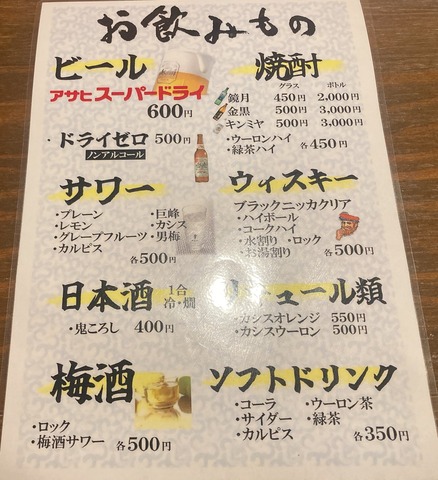 お飲みもの
ビール
アサヒスーパードライ
600円
・ドライゼロ 500円
ノンアルコール
焼酎
グラス ボトル
鏡月 450円 2,000円
金黒 500円 3,000円
キンミヤ 500円 3,000円
・ウーロンハイ
・緑茶ハイ 各450円
サワー
・プレーン ・巨峰
・レモン ・カシス
・グレープフルーツ ・男梅
・カルピス
各500円
ウィスキー
ブラックニッカクリア
・ハイボール
・コークハイ
・水割り ・ロック
・お湯割り 各500円
日本酒 1合
冷・燗
・鬼ころし 400円
リキュール類
・カシスオレンジ 550円
・カシスウーロン 500円
梅酒
・ロック
・梅酒サワー 各500円
ソフトドリンク
・コーラ ・ウーロン茶
・サイダー ・緑茶
・カルピス 各350円